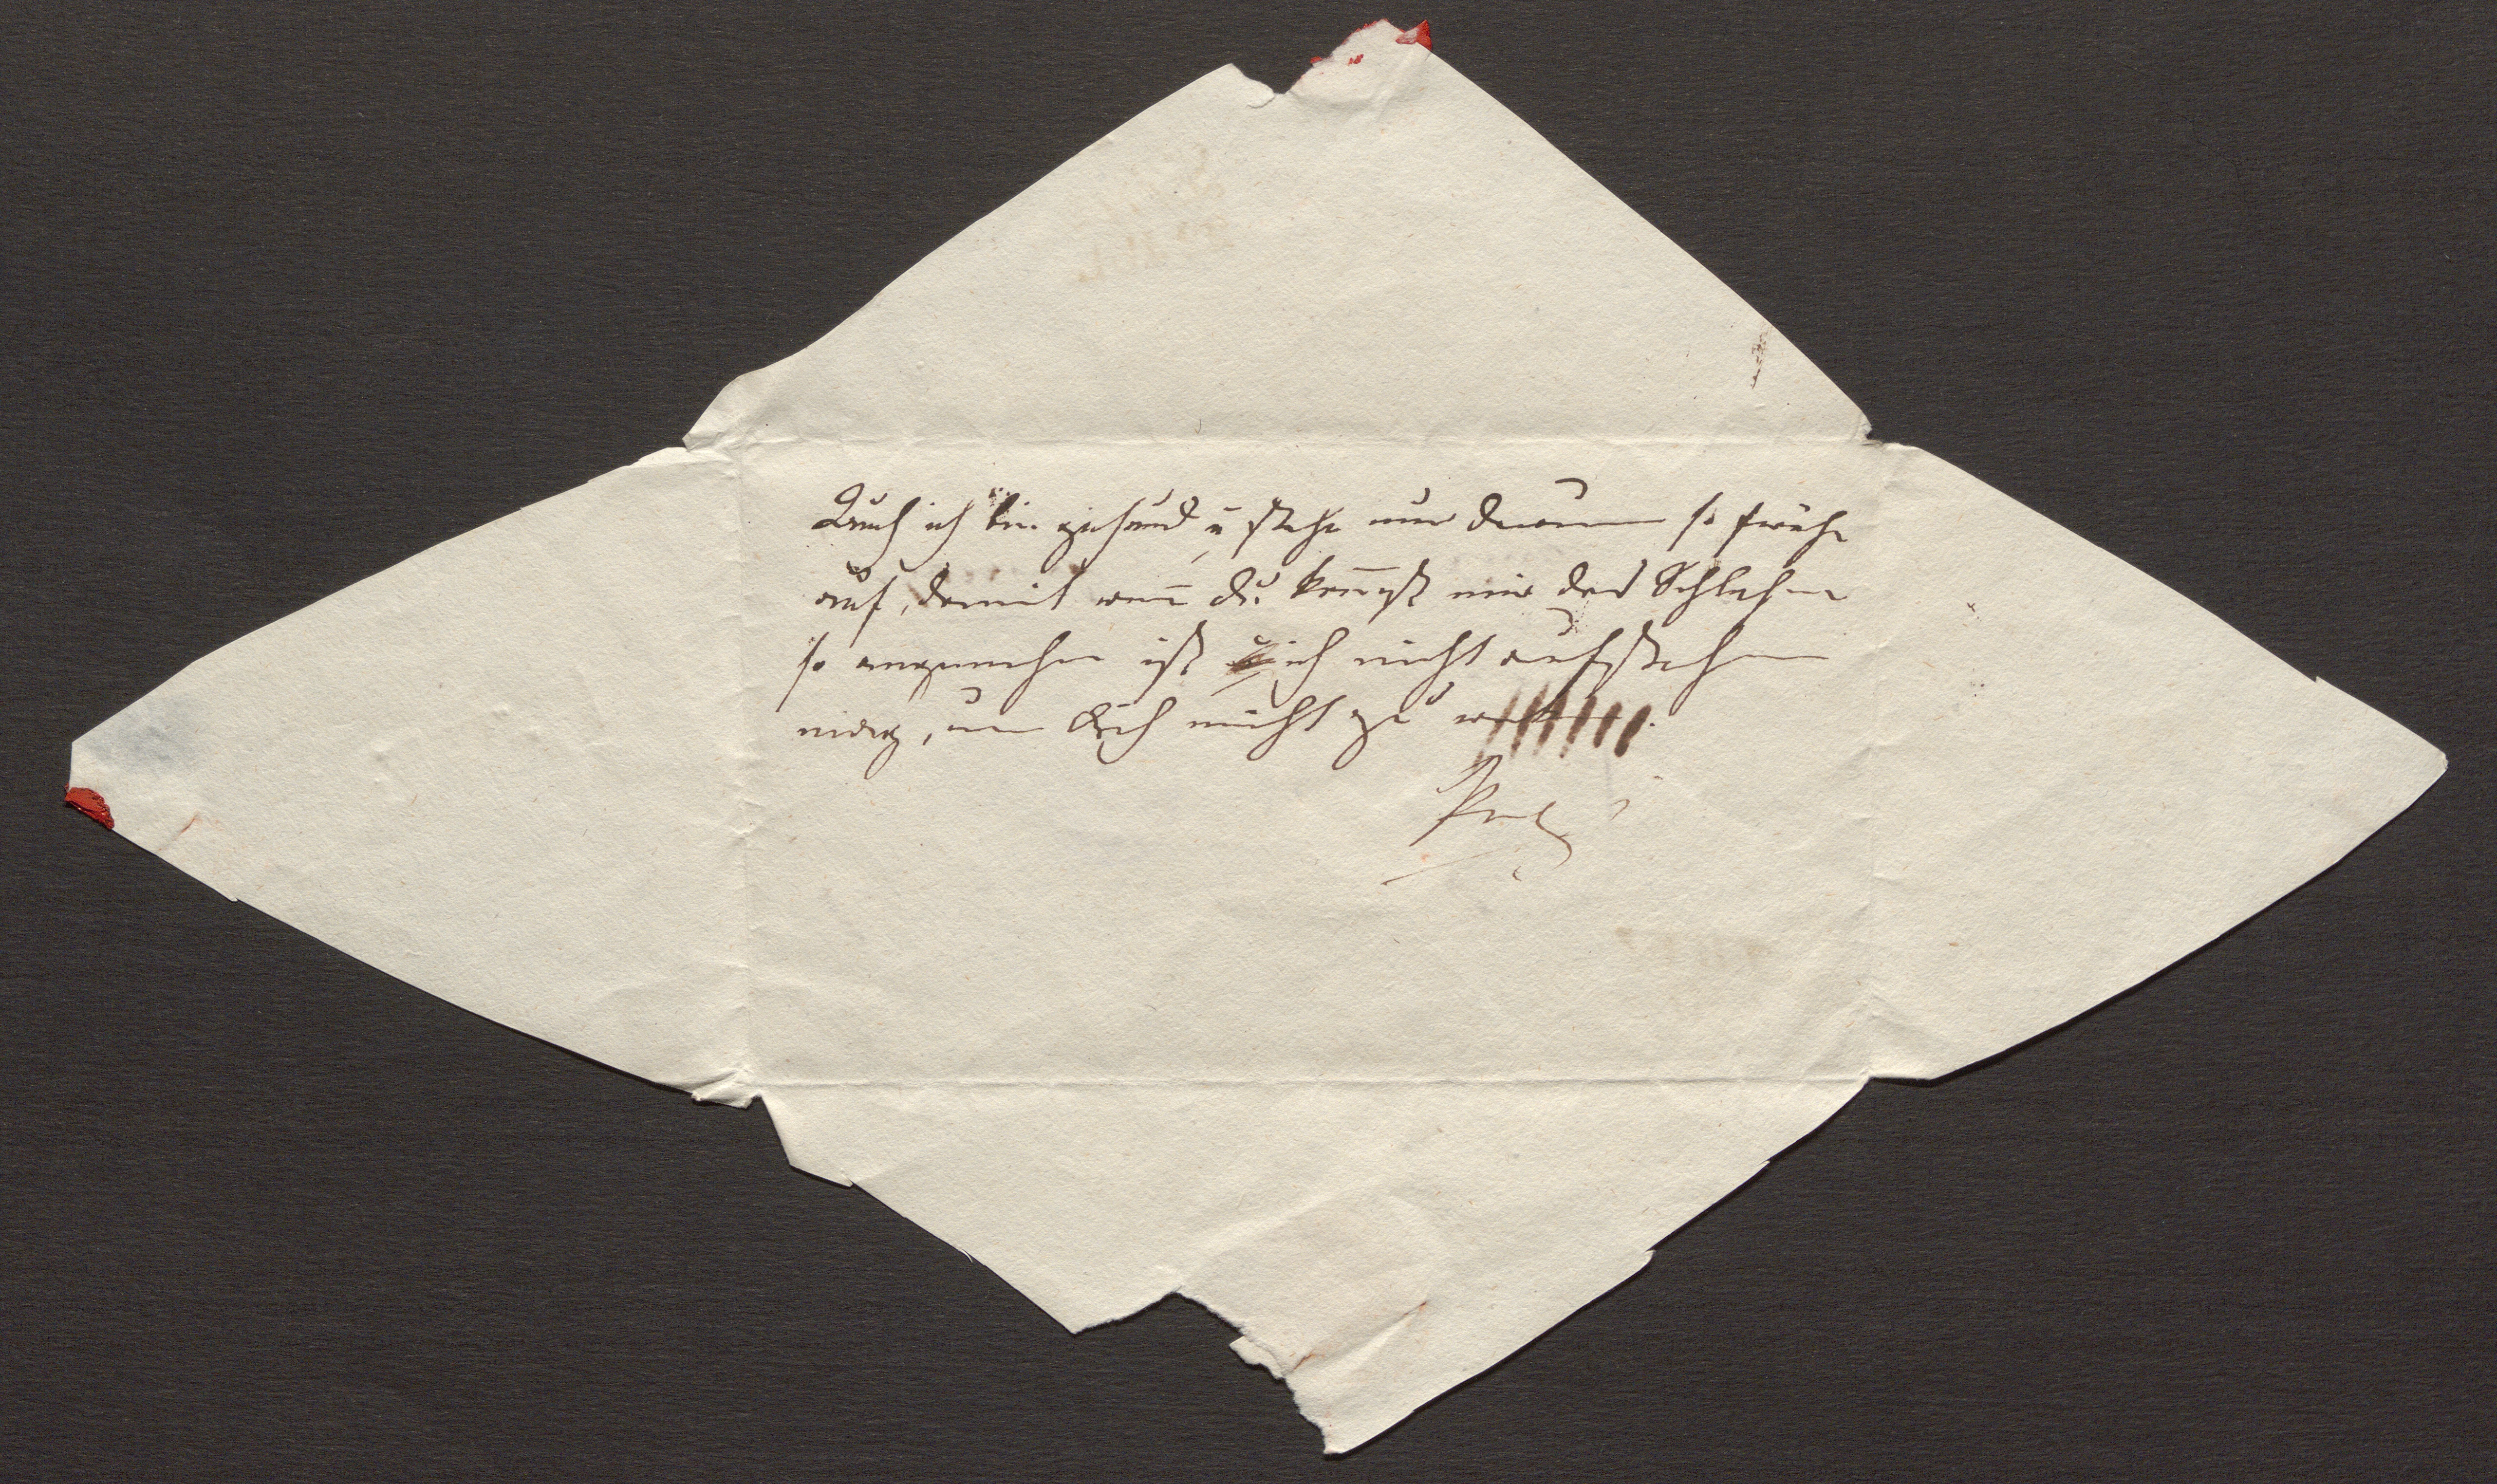 Auch ich bin gesund u stehe nur darum so frühe
auf, damit wenn du komst mir das Schlafen
so angenehm ist u ich nicht aufstehen
mag, um dich nicht zu wecken.